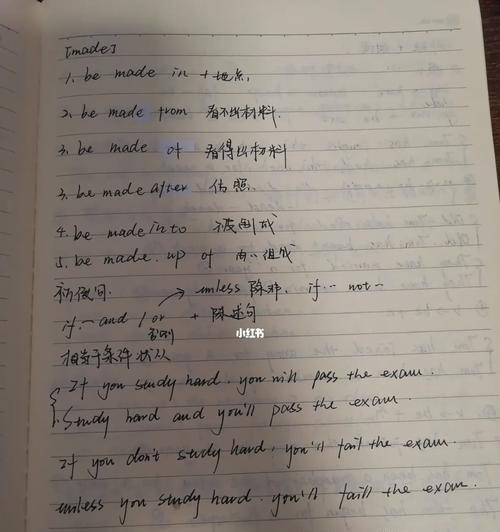 [made]
1. be made in + 地点.
2. be made from 看不出材料.
3. be made of 看得出材料
3. be made after 仿照.
4. be made into 被制成
5. be made up of 由…组成
unless 除非. if… not…
if… and / or + 陈述句
否则
小红书
相当于条件状从
If you study hard. you will pass the exam.
Study hard and you'll pass the exam.
If you don't study hard, you'll fail the exam.
unless you study hard. you'll faill the exam.